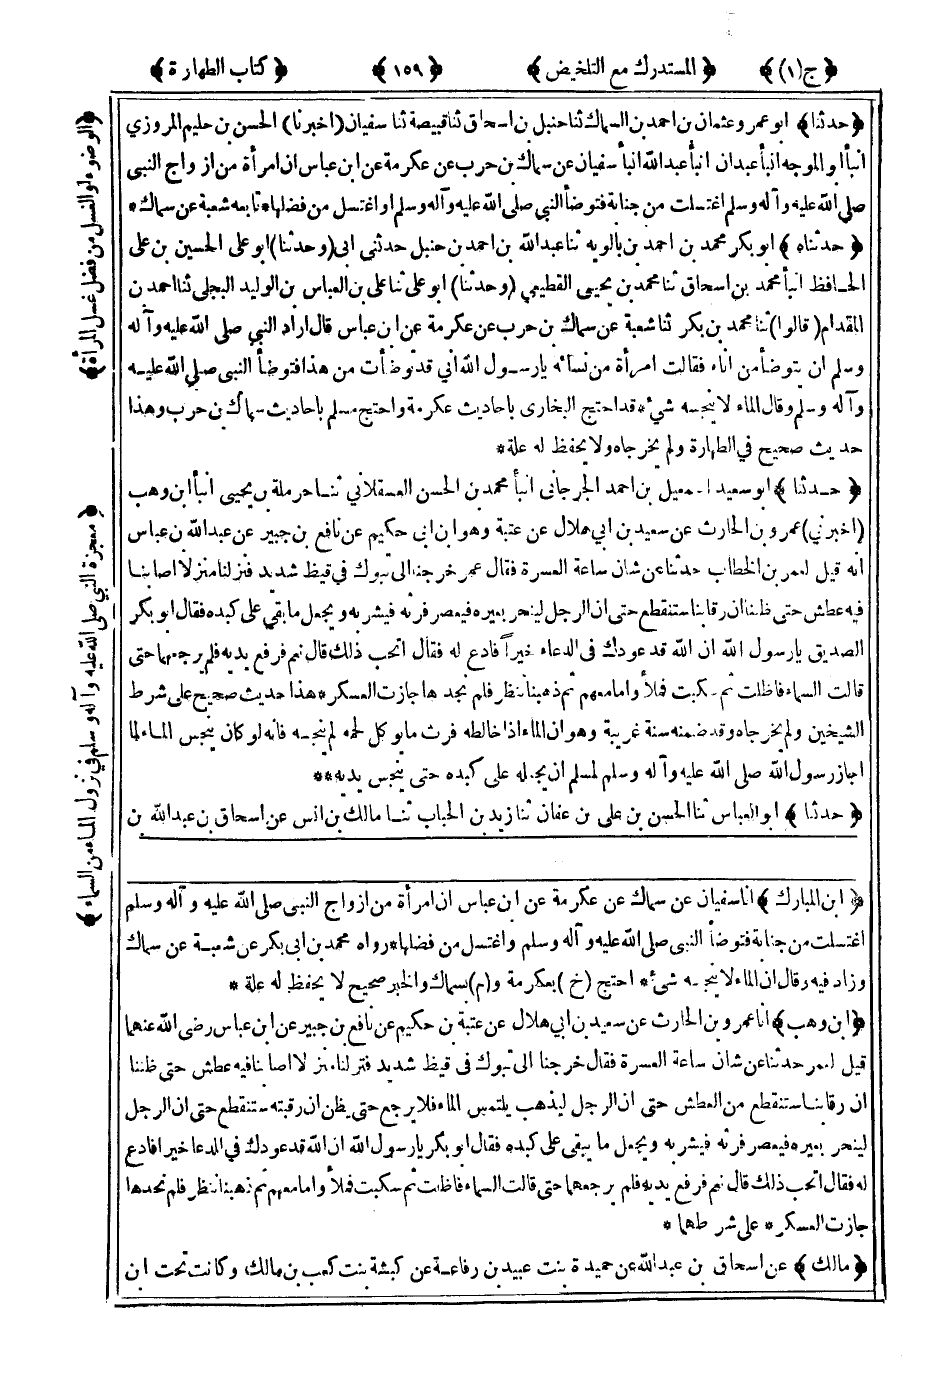 ﴿ ج(١) ﴾ ﴿ المستدرك مع التلخيص ﴾ ﴿ ١٥٩ ﴾ ﴿ كتاب الطهارة ﴾
﴿ حدثنا ﴾ ابو عمرو عثمان بن احمد بن السماك ثنا حنبل بن اسحاق ثنا قبيصة ثنا سفيان (اخبرنا) الحسن بن حليم المروزي
انبأ ابو الموجه انبأ عبدان انبأ عبد الله انبأ سفيان عن سماك بن حرب عن عكرمة عن ابن عباس ان امرأة من ازواج النبي
صلى الله عليه وآله وسلم اغتسلت من جنابة فتوضأ النبي صلى الله عليه وآله وسلم او اغتسل من فضلها * تابعه شعبة عن سماك *
﴿ حدثناه ﴾ ابو بكر محمد بن احمد بن بالويه ثنا عبد الله بن احمد بن حنبل حدثنى ابى (وحدثنا) ابو على الحسين بن على
الحافظ انبأ محمد بن اسحاق ثنا محمد بن يحيى القطيعي (وحدثنا) ابو على ثنا على بن العباس بن الوليد البجلى ثنا احمد بن
المقدام (قالوا) ثنا محمد بن بكر ثنا شعبة عن سماك بن حرب عن عكرمة عن ابن عباس قال اراد النبي صلى الله عليه وآله
وسلم ان يتوضأ من اناء فقالت امرأة من نسائه يا رسول الله اني قد توضأت من هذا فتوضأ النبى صلى الله عليه
وآله وسلم وقال الماء لا ينجسه شيء * قد احتج البخارى باحاديث عكرمة واحتج مسلم باحاديث سماك بن حرب وهذا
حديث صحيح في الطهارة ولم يخرجاه ولا يحفظ له علة *
﴿ حدثنا ﴾ ابو سعيد اسمعيل بن احمد الجرجانى انبأ محمد بن الحسن العسقلاني ثنا حرملة بن يحيى انبأ ابن وهب
(اخبرني) عمرو بن الحارث عن سعيد بن ابي هلال عن عتبة وهو ابن ابى حكيم عن نافع بن جبير عن عبد الله بن عباس
انه قيل لعمر بن الخطاب حدثنا عن شان ساعة العسرة فقال عمر خرجنا الى تبوك فى قيظ شديد فنزلنا منزلا اصابنا
فيه عطش حتى ظننا ان رقابنا ستنقطع حتى ان الرجل لينحر بعيره فيعصر فرثه فيشربه ويجعل ما بقي على كبده فقال ابو بكر
الصديق يا رسول الله ان الله قد عودك فى الدعاء خيراً فادع له فقال اتحب ذلك قال نعم فرفع يديه فلم يرجعهما حتى
قالت السماء فاظلت ثم سكبت فملأوا ما معهم ثم ذهبنا ننظر فلم نجدها جازت العسكر * هذا حديث صحيح على شرط
الشيخين ولم يخرجاه وقد ضمنه سنة غريبة وهو ان الماء اذا خالطه فرث ما يوكل لحمه لم ينجسه فانه لو كان ينجس الماء لما
اجاز رسول الله صلى الله عليه وآله وسلم لمسلم ان يجعله على كبده حتى ينجس يديه **
﴿ حدثنا ﴾ ابو العباس ثنا الحسن بن على بن عفان ثنا زيد بن الحباب ثنا مالك بن انس عن اسحاق بن عبد الله بن
﴿ ابن المبارك ﴾ انا سفيان عن سماك عن عكرمة عن ابن عباس ان امرأة من ازواج النبى صلى الله عليه وآله وسلم
اغتسلت من جنابة فتوضأ النبى صلى الله عليه وآله وسلم واغتسل من فضلها * رواه محمد بن ابى بكر عن شعبة عن سماك
وزاد فيه وقال ان الماء لا ينجسه شيء * احتج (خ) بعكرمة و(م) بسماك والخبر صحيح لا يحفظ له علة *
﴿ ابن وهب ﴾ انا عمرو بن الحارث عن سعيد بن ابي هلال عن عتبة بن حكيم عن نافع بن جبير عن ابن عباس رضى الله عنهما
قيل لعمر حدثنا عن شان ساعة العسرة فقال خرجنا الى تبوك فى قيظ شديد فنزلنا منزلا اصابنا فيه عطش حتى ظننا
ان رقابنا ستنقطع من العطش حتى ان الرجل ليذهب يلتمس الماء فلا يرجع حتى يظن ان رقبته ستنقطع حتى ان الرجل
لينحر بعيره فيعصر فرثه فيشربه ويجعل ما يبقى على كبده فقال ابو بكر يا رسول الله ان الله قد عودك في الدعا خيرا فادع
له فقال اتحب ذلك قال نعم فرفع يديه فلم يرجعهما حتى قالت السماء فاظلت ثم سكبت فملأوا ما معهم ثم ذهبنا ننظر فلم نجدها
جازت العسكر * على شرطهما *
﴿ مالك ﴾ عن اسحاق بن عبد الله عن حميدة بنت عبيد بن رفاعة عن كبشة بنت كعب بن مالك وكانت تحت ابن
﴿ الوضوء او الغسل من فضل غسل المرأة ﴾
﴿ معجزة النبي صلى الله عليه وآله وسلم في نزول الماء من السماء ﴾